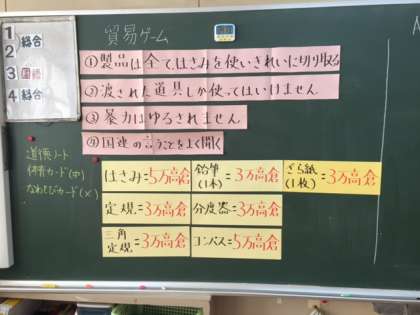 貿易ゲーム
①製品は全て、はさみを使いきれいに切り取る
②渡された道具しか使ってはいけません
③暴力はゆるされません
④国連の言うことをよく聞く
1 総合
2
3 国語
4 総合
道徳ノート
体育カード(中)
なわとびカード(×)
はさみ=5万高倉
鉛筆(1本)=3万高倉
ざら紙(1枚)=3万高倉
定規=3万高倉
分度器=3万高倉
三角定規=3万高倉
コンパス=5万高倉
A